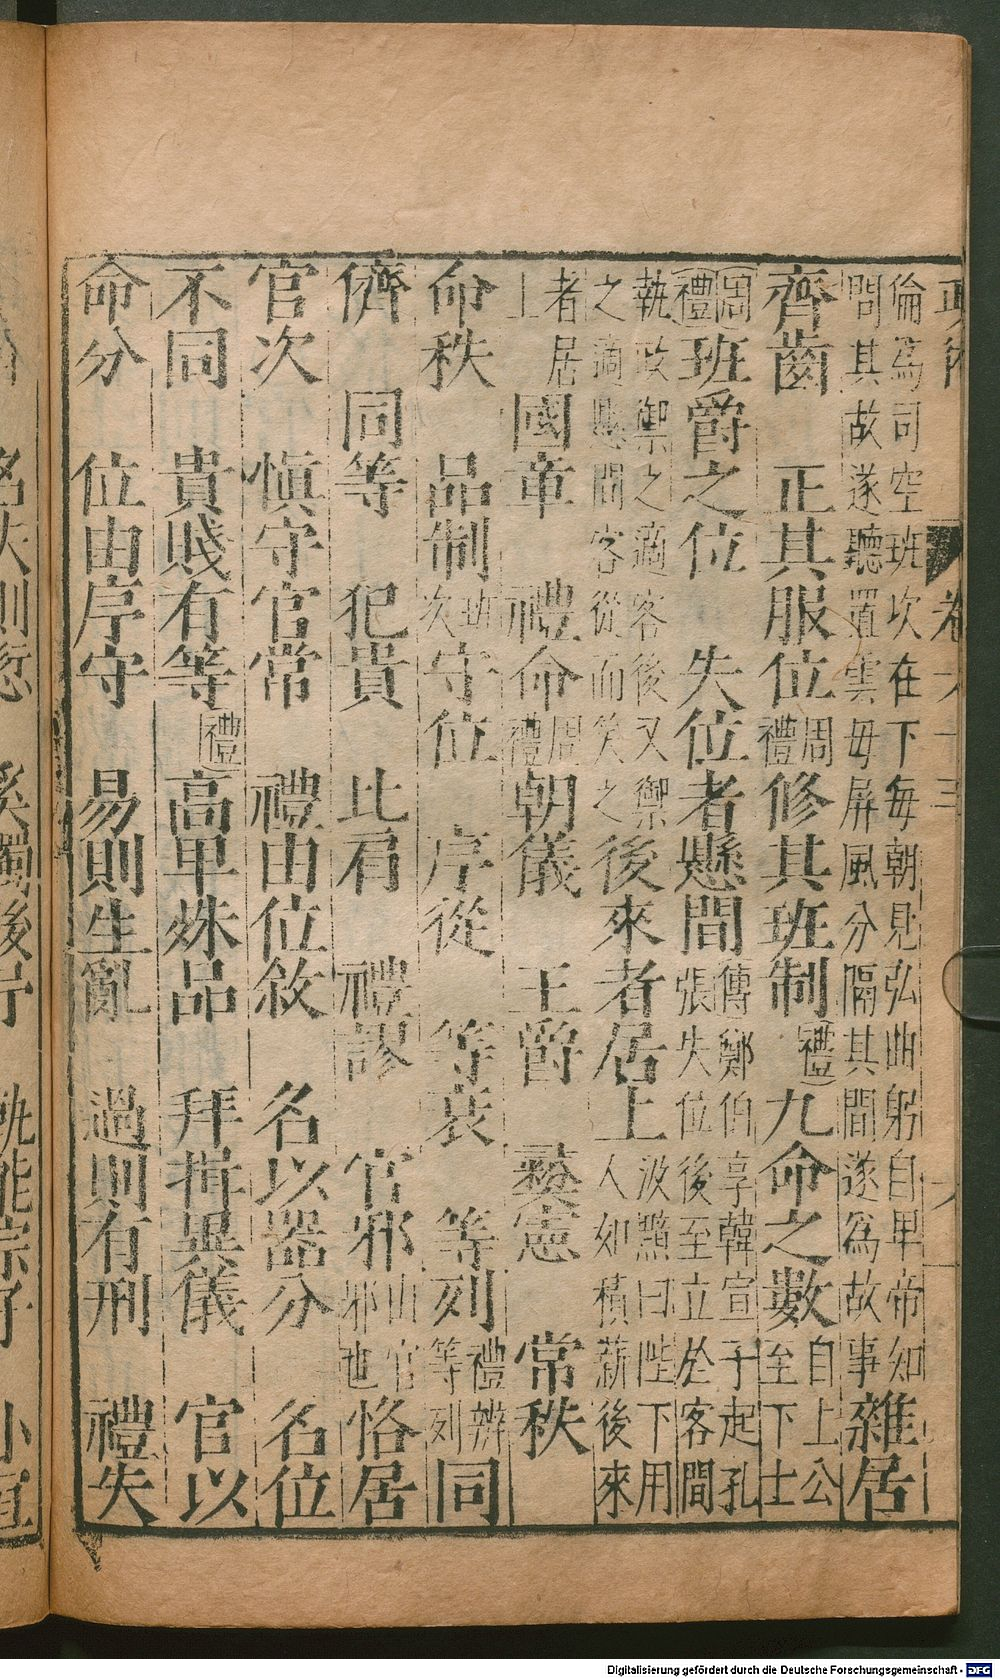 倫為司空班次在下每朝見弘曲躬自卑帝知
問其故遂聽置雲母屏風分隔其間遂為故事
雜居
齊齒　正其服位
周
禮
修其班制
禮
九命之數
自上公
至下士
周
禮
班爵之位　失位者懸間
傳鄭伯享韓宣子起孔
張失位後至立於客間
執政禦之適客後又禦
之適懸間客從而笑之
後來者居上
汲黯曰陛下用
人如積薪後來
者居
上
國章　禮命
周
禮
朝儀　王爵　彝憲　常秩
命秩　品制
班
次
守位　序從　等衰　等列
禮辨
等列
同
儕　同等　犯貴　比肩　禮謬　官邪
山官
邪也
恪居
官次　慎守官常　禮由位敘　名以器分　名位
不同　貴賤有等
禮
高卑殊品　拜揖異儀　官以
命分　位由序守　易則生亂　過則有刑　禮失
Digitalisierung gefördert durch die Deutsche Forschungsgemeinschaft - DFG